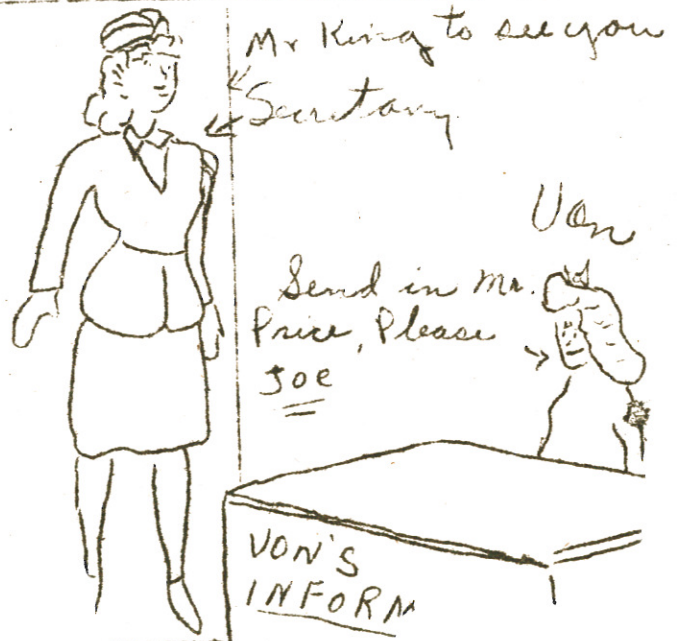 Mr King to see you
Secretary
Von
Send in Mr.
Price, Please
Joe
VON'S
INFORM